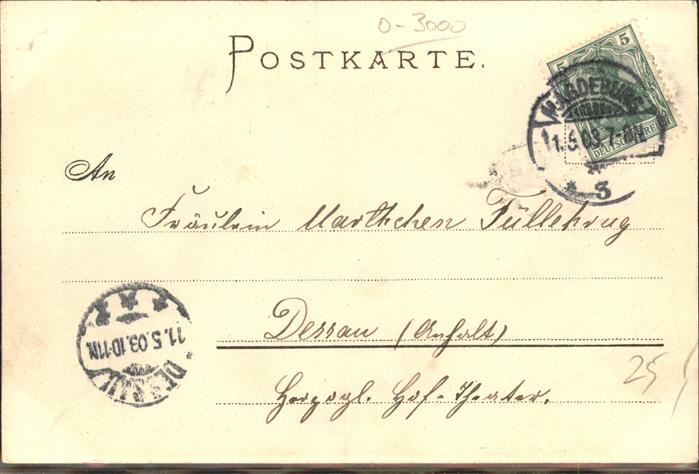 0-3000
POSTKARTE.
5 5
DEUTSCHES REICH
MAGDEBURG
11.5.03.7-8N.
* 3
An
Fräulein Marthchen Füllekrug
Dessau (Anhalt)
Herzogl. Hof-Theater.
11.5.03.10-11N.
DESSAU
25